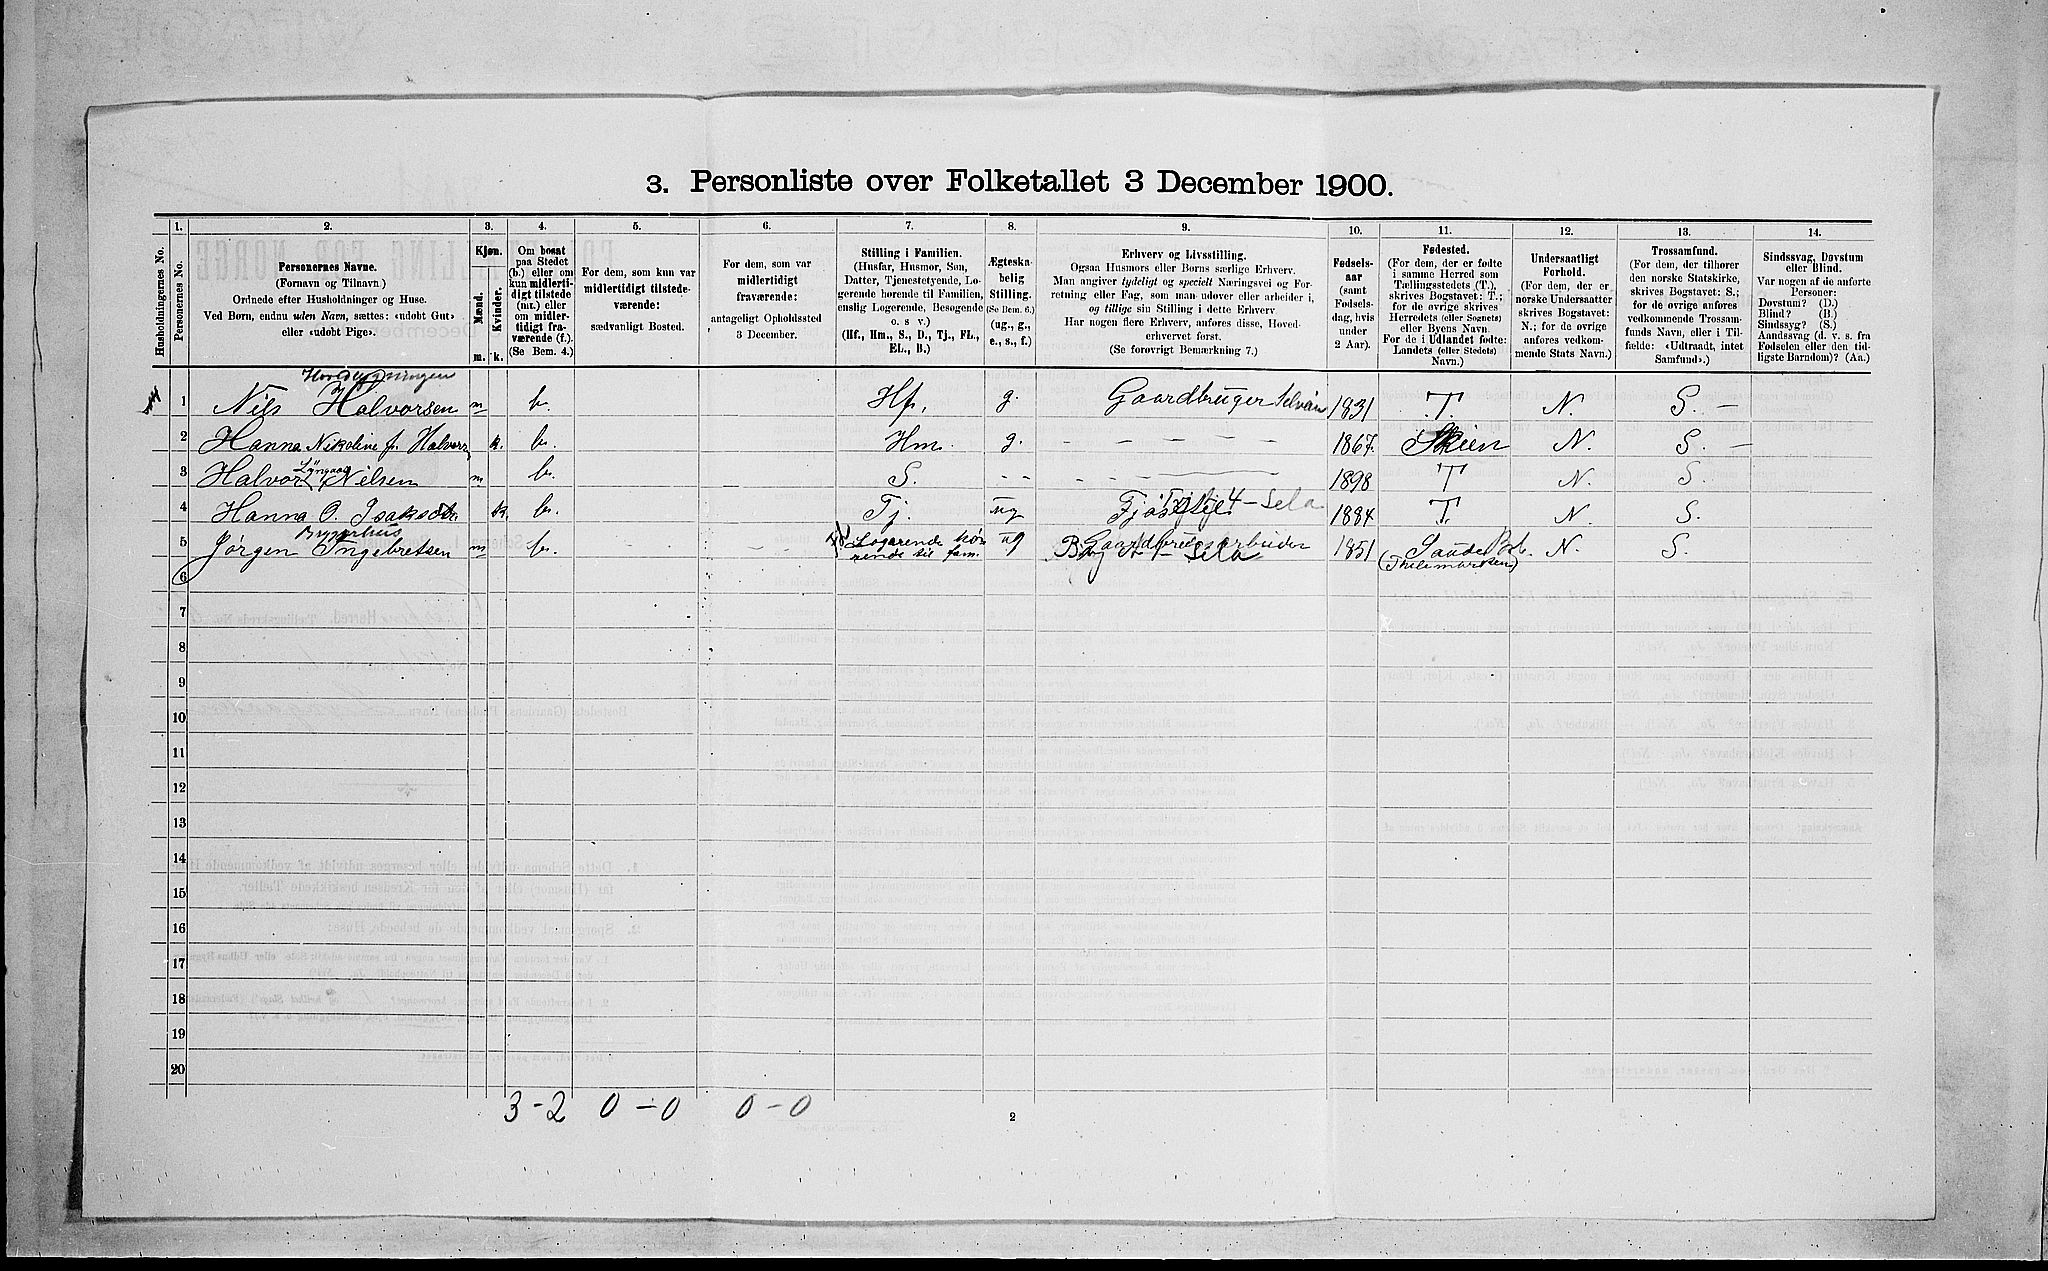 3. Personliste over Folketallet 3 December 1900.
1. 2. 3. 4. 5. 6. 7. 8. 9. 10. 11. 12. 13. 14.
Husholdningernes No.
Personernes No.
Personernes Navne.
(Fornavn og Tilnavn.)
Ordnede efter Husholdninger og Huse.
Ved Børn, endnu uden Navn, sættes: «udobt Gut»
eller «udobt Pige».
Kjøn.
Mænd.
Kvinder.
m. k.
Om bosat
paa Stedet
(b.) eller om
kun midlerti-
digt tilstede
(mt.) eller
om midler-
tidigt fra-
værende (f.).
(Se Bem. 4.)
For dem, som kun var
midlertidigt tilstede-
værende:
sædvanligt Bosted.
For dem, som var
midlertidigt
fraværende:
antageligt Opholdssted
3 December.
Stilling i Familien.
(Husfar, Husmor, Søn,
Datter, Tjenestetyende, Lo-
gerende hørende til Familien,
enslig Logerende, Besøgende
o. s. v.)
(Hf., Hm., S., D., Tj., FL.,
EL., B.)
Ægteska-
belig
Stilling.
(Se Bem. 6.)
(ug., g.,
e., s., f.)
Erhverv og Livsstilling.
Ogsaa Husmors eller Børns særlige Erhverv.
Man angiver tydeligt og specielt Næringsvei og For-
retning eller Fag, som man udøver eller arbeider i,
og tillige sin Stilling i dette Erhverv.
Har nogen flere Erhverv, anføres disse, Hoved-
erhvervet først.
(Se forøvrigt Bemærkning 7.)
Fødsels-
aar
(samt
Fødsels-
dag, hvis
under
2 Aar).
Fødested.
(For dem, der er fødte
i samme Herred som
Tællingsstedets (T.),
skrives Bogstavet: T.;
for de øvrige skrives
Herredets (eller Sognets)
eller Byens Navn.
For de i Udlandet fødte:
Landets (eller Stedets)
Navn.)
Undersaatligt
Forhold.
(For dem, der er
norske Undersaatter
skrives Bogstavet:
N.; for de øvrige
anføres vedkom-
mende Stats Navn.)
Trossamfund.
(For dem, der tilhører
den norske Statskirke,
skrives Bogstavet: S.;
for de øvrige anføres
vedkommende Trossam-
funds Navn, eller i Til-
fælde: «Udtraadt, intet
Samfund».)
Sindssvag, Døvstum
eller Blind.
Var nogen af de anførte
Personer:
Døvstum? (D.)
Blind? (B.)
Sindssyg? (S.)
Aandssvag (d. v. s. fra
Fødselen eller den tid-
ligste Barndom)? (Aa.)
Hovedbygningen
1 Nils Halvorsen m b. Hf. g. Gaardbruger Selveier 1831 T. N. S. —
2 Hanna Nikoline f. Halvors k. b. Hm. g. — — — — 1867. Skien N. S. —
3 Halvor Nilsen m b. S. - - 1898 T N. S.
4 Hanna O. Isaksdtr. k. b. Tj. ug 4 — Sela 1884 T. N. S.
Byggehus
5 Jørgen Ingebretsen m b. Logerende hø- ug Gaardbrugsarbeider 1851 Saude N. S.
rende til fam. Sela (Thelemarken)
6
7
8
9
10
11
12
13
14
15
16
17
18
19
20
3 - 2 0 - 0 0 - 0
2